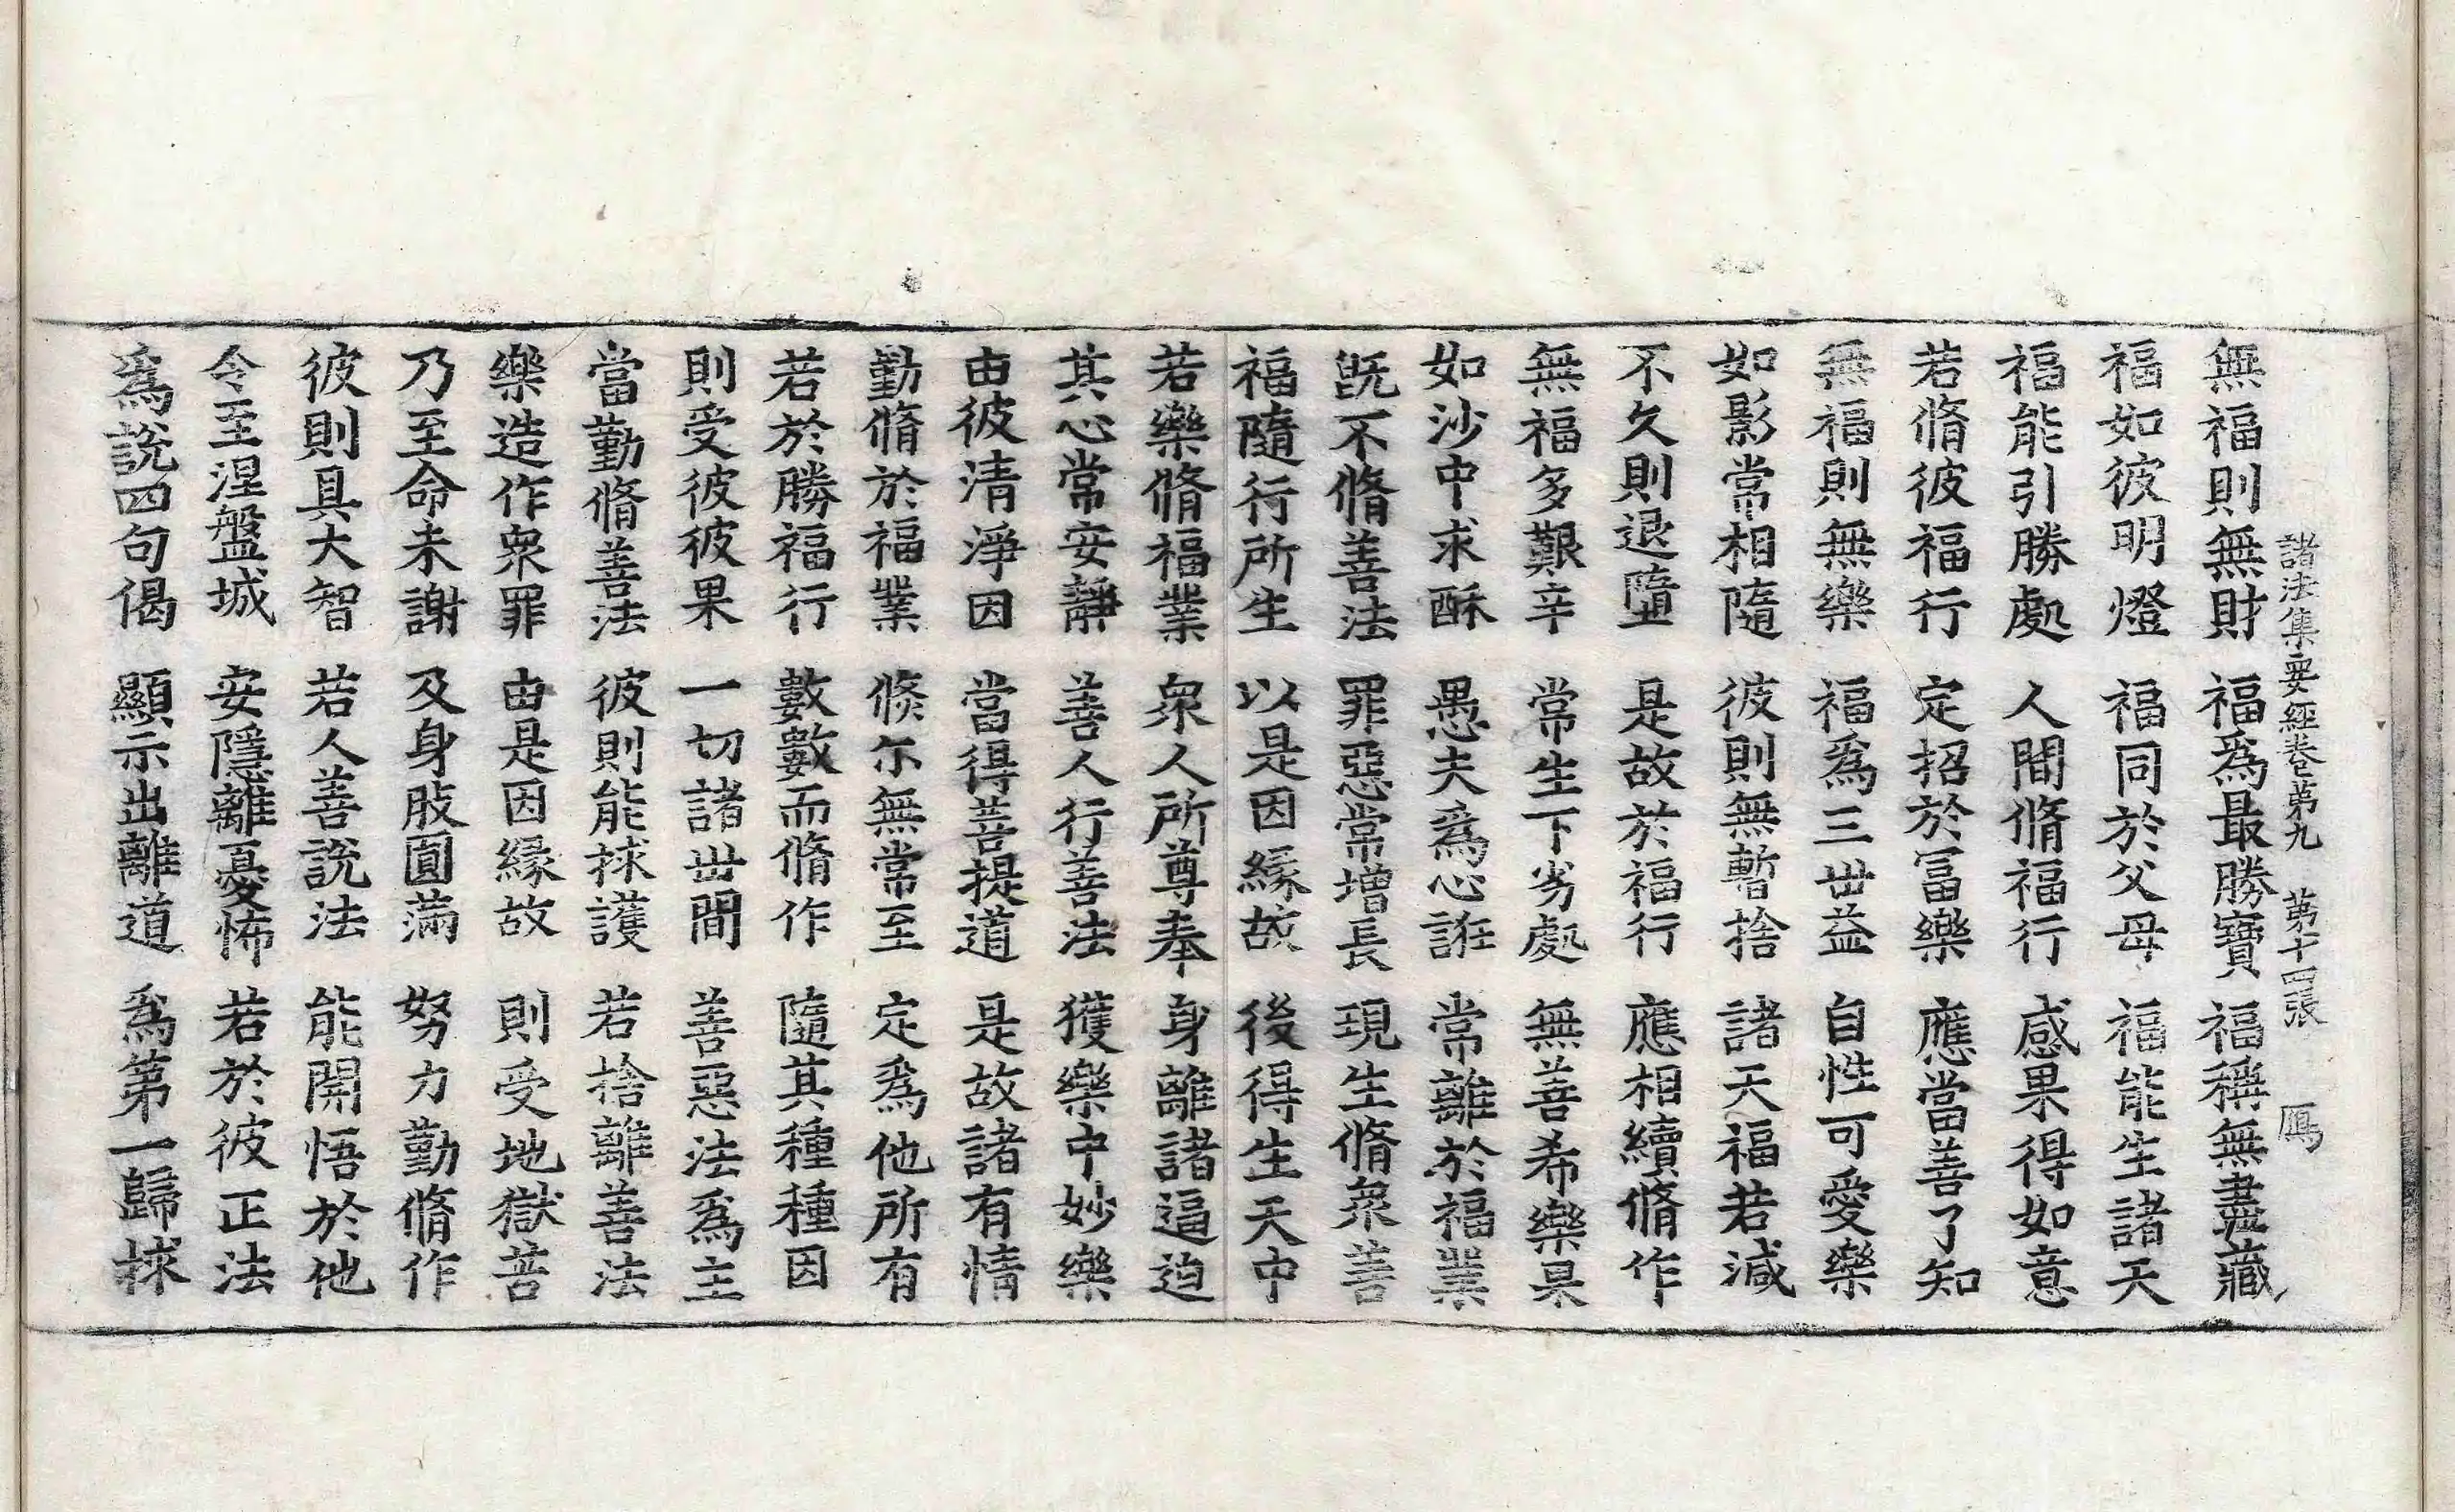 諸法集要經卷第九 第十四張 鴈
無福則無財 福爲最勝寶 福稱無盡藏
福如彼明燈 福同於父母 福能生諸天
福能引勝處 人間脩福行 感果得如意
若脩彼福行 定招於冨樂 應當善了知
無福則無樂 福爲三世益 自性可愛樂
如影常相隨 彼則無暫捨 諸天福若減
不久則退墮 是故於福行 應相續脩作
無福多艱辛 常生下劣處 無善希樂果
如沙中求酥 愚夫爲心誑 常離於福業
旣不脩善法 罪惡常增長 現生脩衆善
福隨行所生 以是因緣故 後得生天中
若樂脩福業 衆人所尊奉 身離諸逼迫
其心常安靜 善人行善法 獲樂中妙樂
由彼清淨因 當得菩提道 是故諸有情
勤脩於福業 倐尒無常至 定爲他所有
若於勝福行 數數而脩作 隨其種種因
則受彼彼果 一切諸世間 善惡法爲主
當勤脩善法 彼則能捄護 若捨離善法
樂造作衆罪 由是因緣故 則受地獄苦
乃至命未謝 及身肢圓滿 努力勤脩作
彼則具大智 若人善說法 能開悟於他
令至涅盤城 安隱離憂怖 若於彼正法
爲說四句偈 顯示出離道 爲第一歸捄